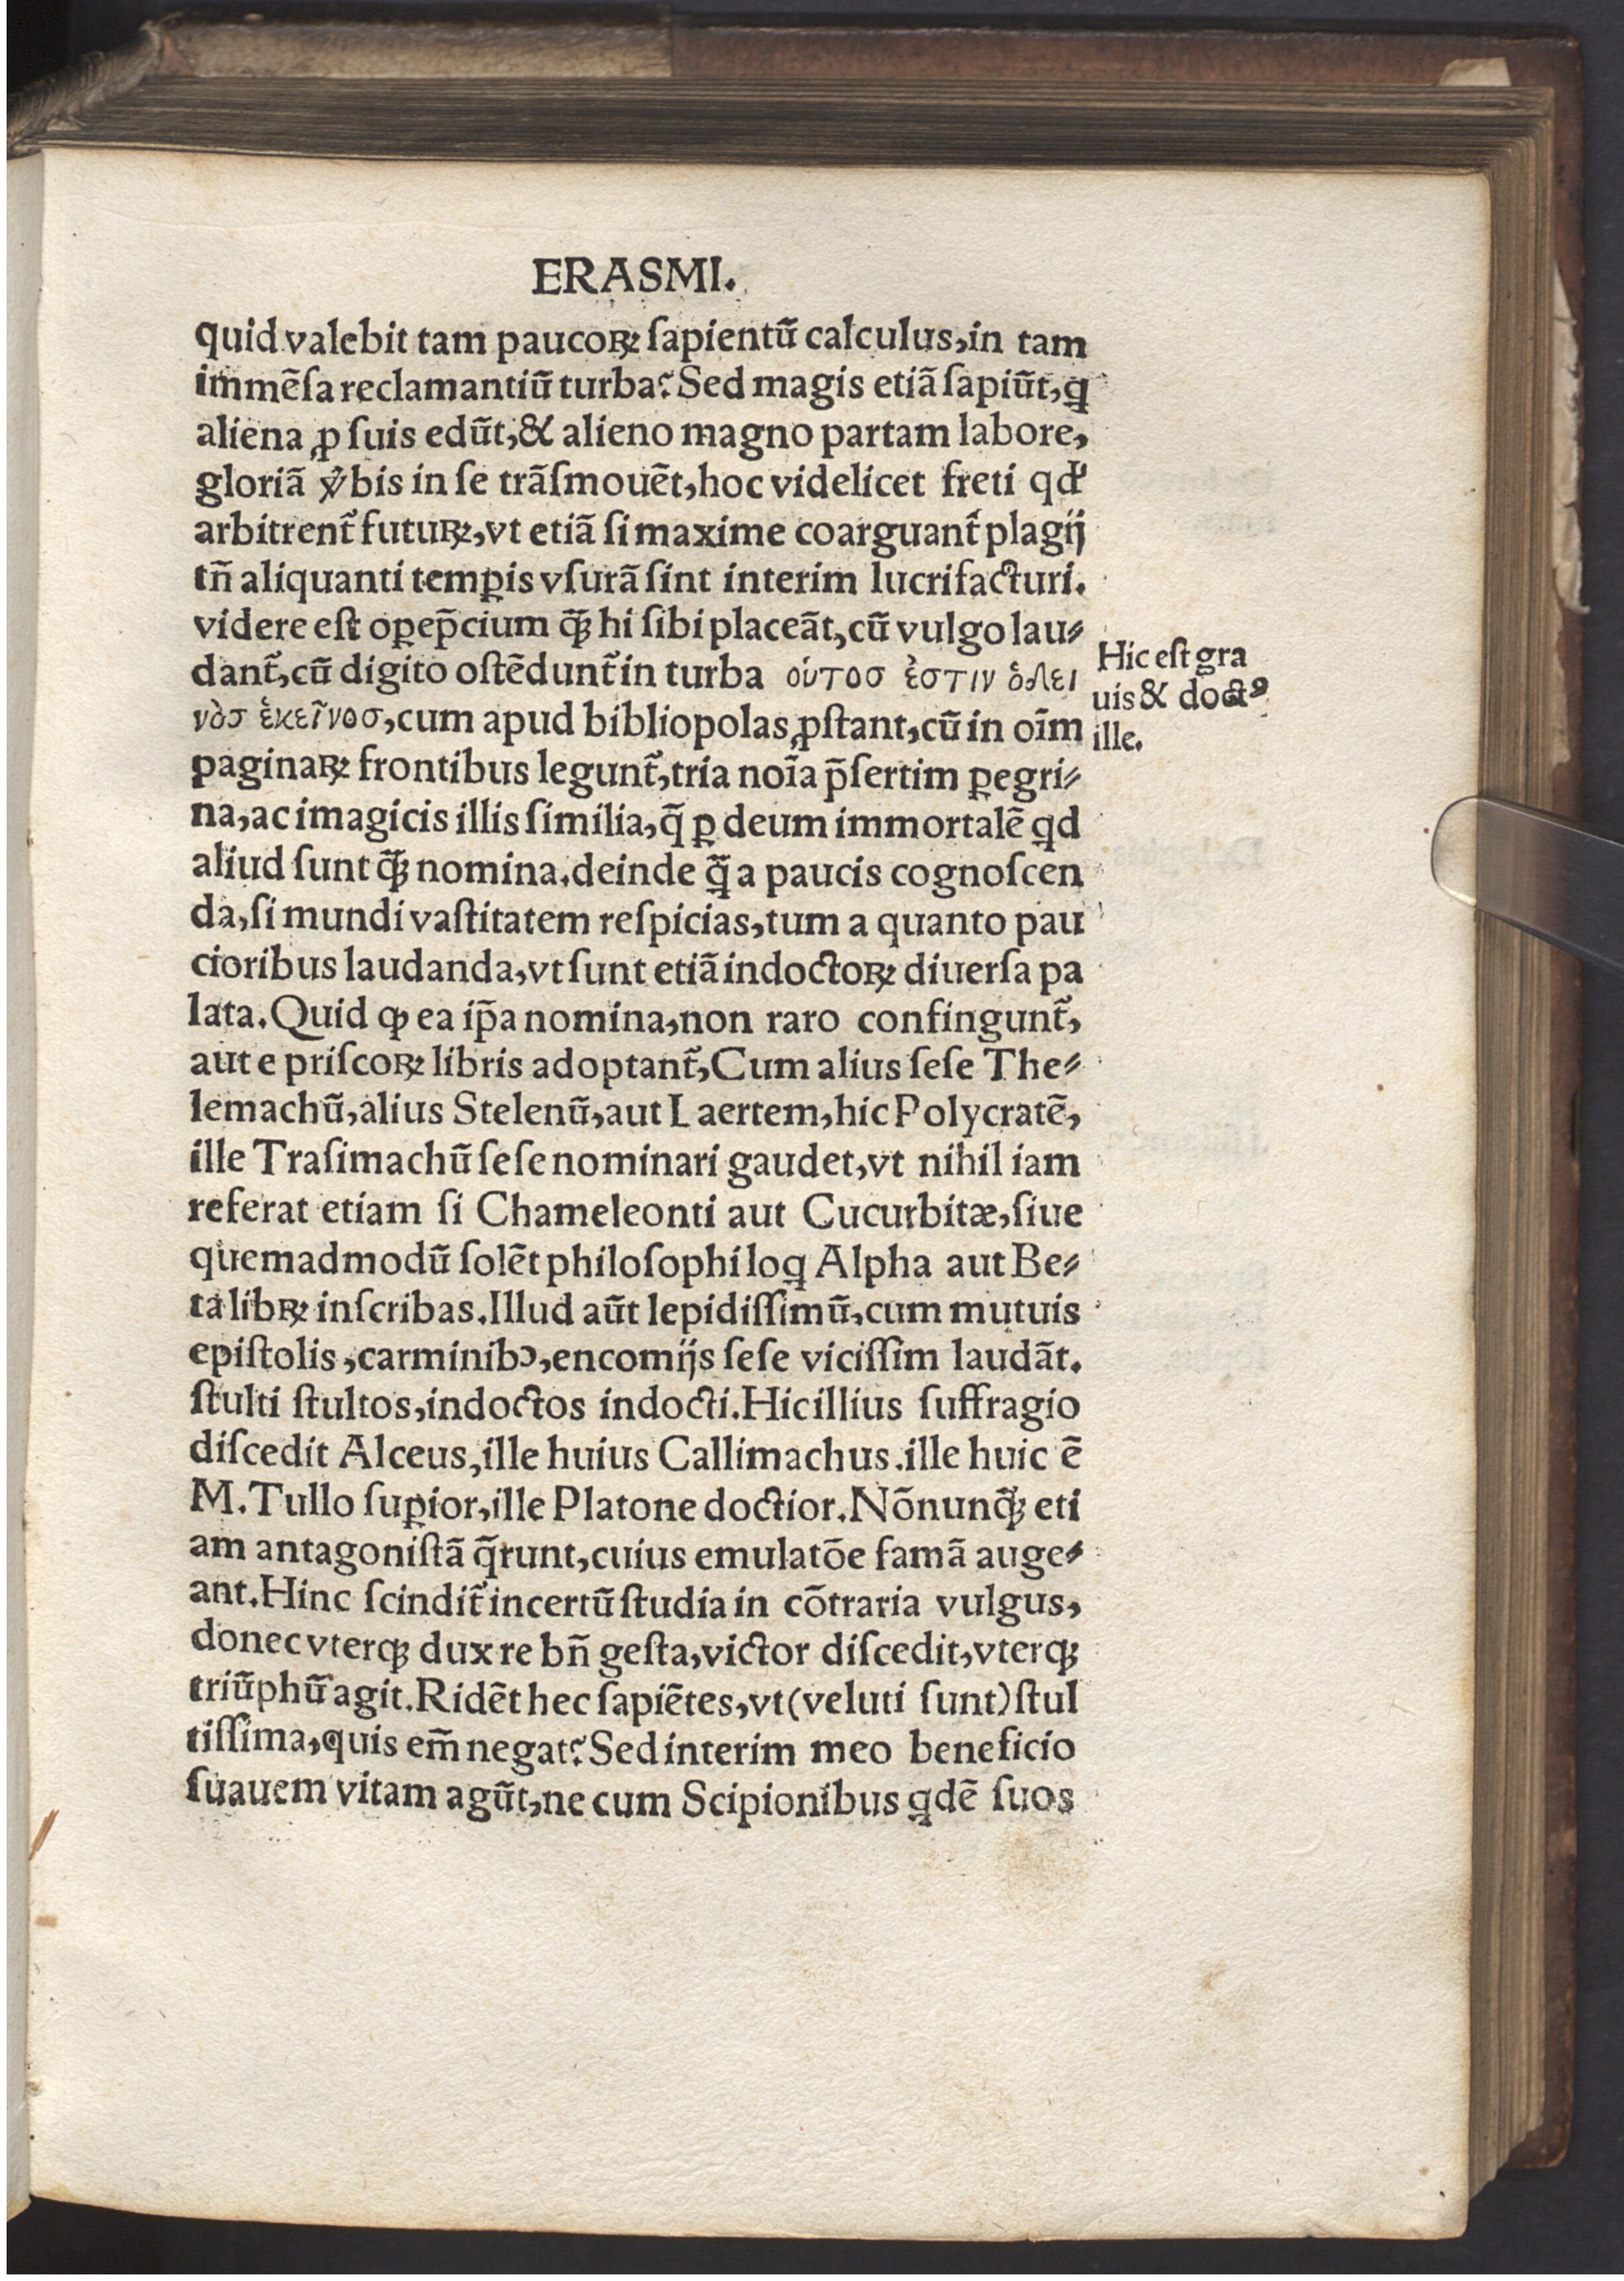 ERASMI.
quid valebit tam paucoꝝ ſapientū calculus, in tam
immēſa reclamantiū turba? Sed magis etiā ſapiūt, ꝗ
aliena ꝓ ſuis edūt, & alieno magno partam labore,
gloriā ꝟbis in ſe trāſmouēt, hoc videlicet freti ꝙ
arbitrent᷑ futuꝝ, vt etiā ſi maxime coarguant᷑ plagij
tñ aliquanti temꝑis vſurā ſint interim lucrifacturi.
videre eſt oꝑep̄cium ꝗ̃ꝫ hi ſibi placeāt, cū vulgo lau⸗
dant᷑, cū digito oſtēdunt᷑ in turba οὑτοσ ἐστιν ὁ δει
νὸσ ἐκεῖνοσ, cum apud bibliopolas ꝓſtant, cū in oīm
paginaꝝ frontibus legunt᷑, tria noīa p̄ſertim ꝑegri⸗
na, ac imagicis illis ſimilia, q̄ ꝑ deum immortalē ꝗd
aliud ſunt ꝗ̃ꝫ nomina. deinde ꝗ̃ a paucis cognoſcen
da, ſi mundi vaſtitatem reſpicias, tum a quanto pau
cioribus laudanda, vt ſunt etiā indoctoꝝ diuerſa pa
lata. Quid ꝙ ea ip̄a nomina, non raro confingunt᷑,
aut e priſcoꝝ libris adoptant᷑, Cum alius ſeſe The⸗
lemachū, alius Stelenū, aut Laertem, hic Polycratē,
ille Traſimachū ſeſe nominari gaudet, vt nihil iam
referat etiam ſi Chameleonti aut Cucurbitæ, ſiue
quemadmodū ſolēt philoſophi loꝗ Alpha aut Be⸗
ta libꝝ inſcribas. Illud aūt lepidiſſimū, cum mutuis
epiſtolis, carminibꝰ, encomijs ſeſe viciſſim laudāt.
ſtulti ſtultos, indoctos indocti. Hic illius ſuffragio
diſcedit Alceus, ille huius Callimachus. ille huic ē
M. Tullo ſuꝑior, ille Platone doctior. Nōnunꝗ̃ꝫ eti
am antagoniſtā q̄runt, cuius emulatōe famā auge⸗
ant. Hinc ſcindit᷑ incertū ſtudia in cōtraria vulgus,
donec vterqꝫ dux re bñ geſta, victor diſcedit, vterqꝫ
triūphū agit. Ridēt hec ſapiētes, vt (veluti ſunt) ſtul
tiſſima, quis em̄ negat? Sed interim meo beneficio
ſuauem vitam agūt, ne cum Scipionibus ꝗdē ſuos
Hic eſt gra
uis & doctꝰ
ille.